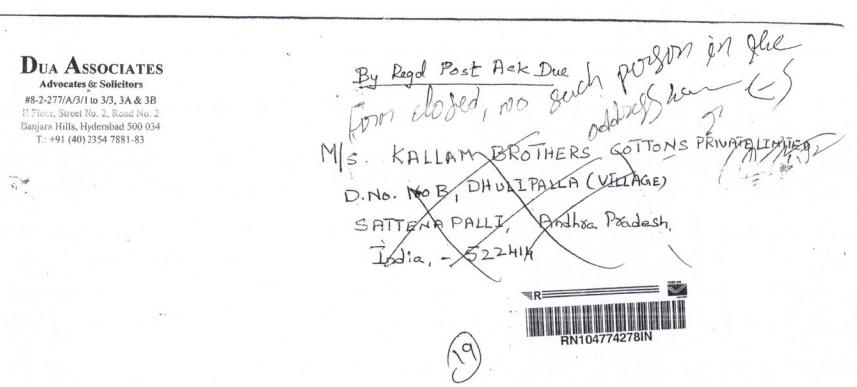 DUA ASSOCIATES
Advocates & Solicitors
#8-2-277/A/3/1 to 3/3, 3A & 3B
II Floor, Street No. 2, Road No. 2
Banjara Hills, Hyderabad 500 034
T.: +91 (40) 2354 7881-83
By Regd Post Ack Due
Form closed, no such person in the
address
M/s. KALLAM BROTHERS COTTONS PRIVATE LIMITED
D.No. 160 B, DHULIPALLA (VILLAGE)
SATTENAPALLI, Andhra Pradesh,
India, - 522414
R
RN104774278IN
19